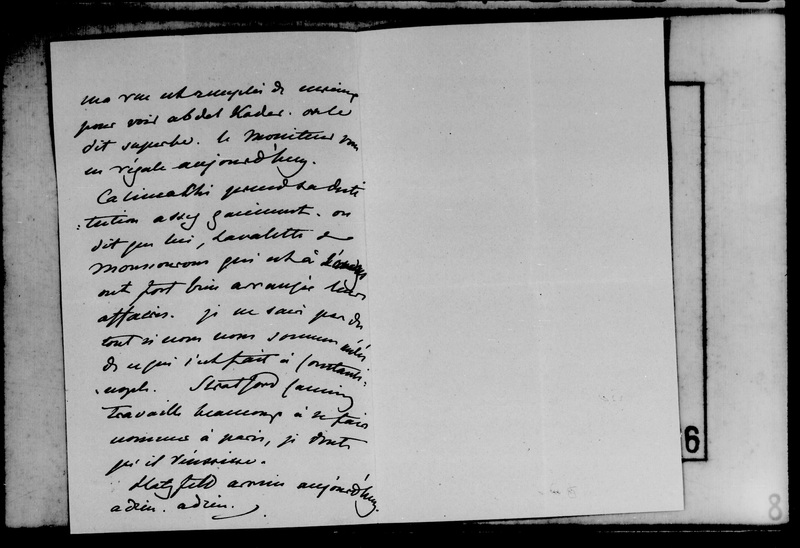 ma rue est remplie de curieux
pour voir abdel Kader. on le
dit superbe. le Moniteur vous
en régale aujourd'huy.
Calimakhi prend sa desti
:tution assez gaiement. on
dit que lui, Lavalette &
qui est à
ont fort bien arrangé leurs
affaires. je ne sais pas du
tout si nous nous sommes mêlés
de ce qui s'est fait à Constanti:
:nople. Stratford Canning
travaille beaucoup à se faire
nommer à paris, je doute
qu'il réussisse.
Hatzfeld arrive aujourd'huy.
adieu. adieu.
6
8